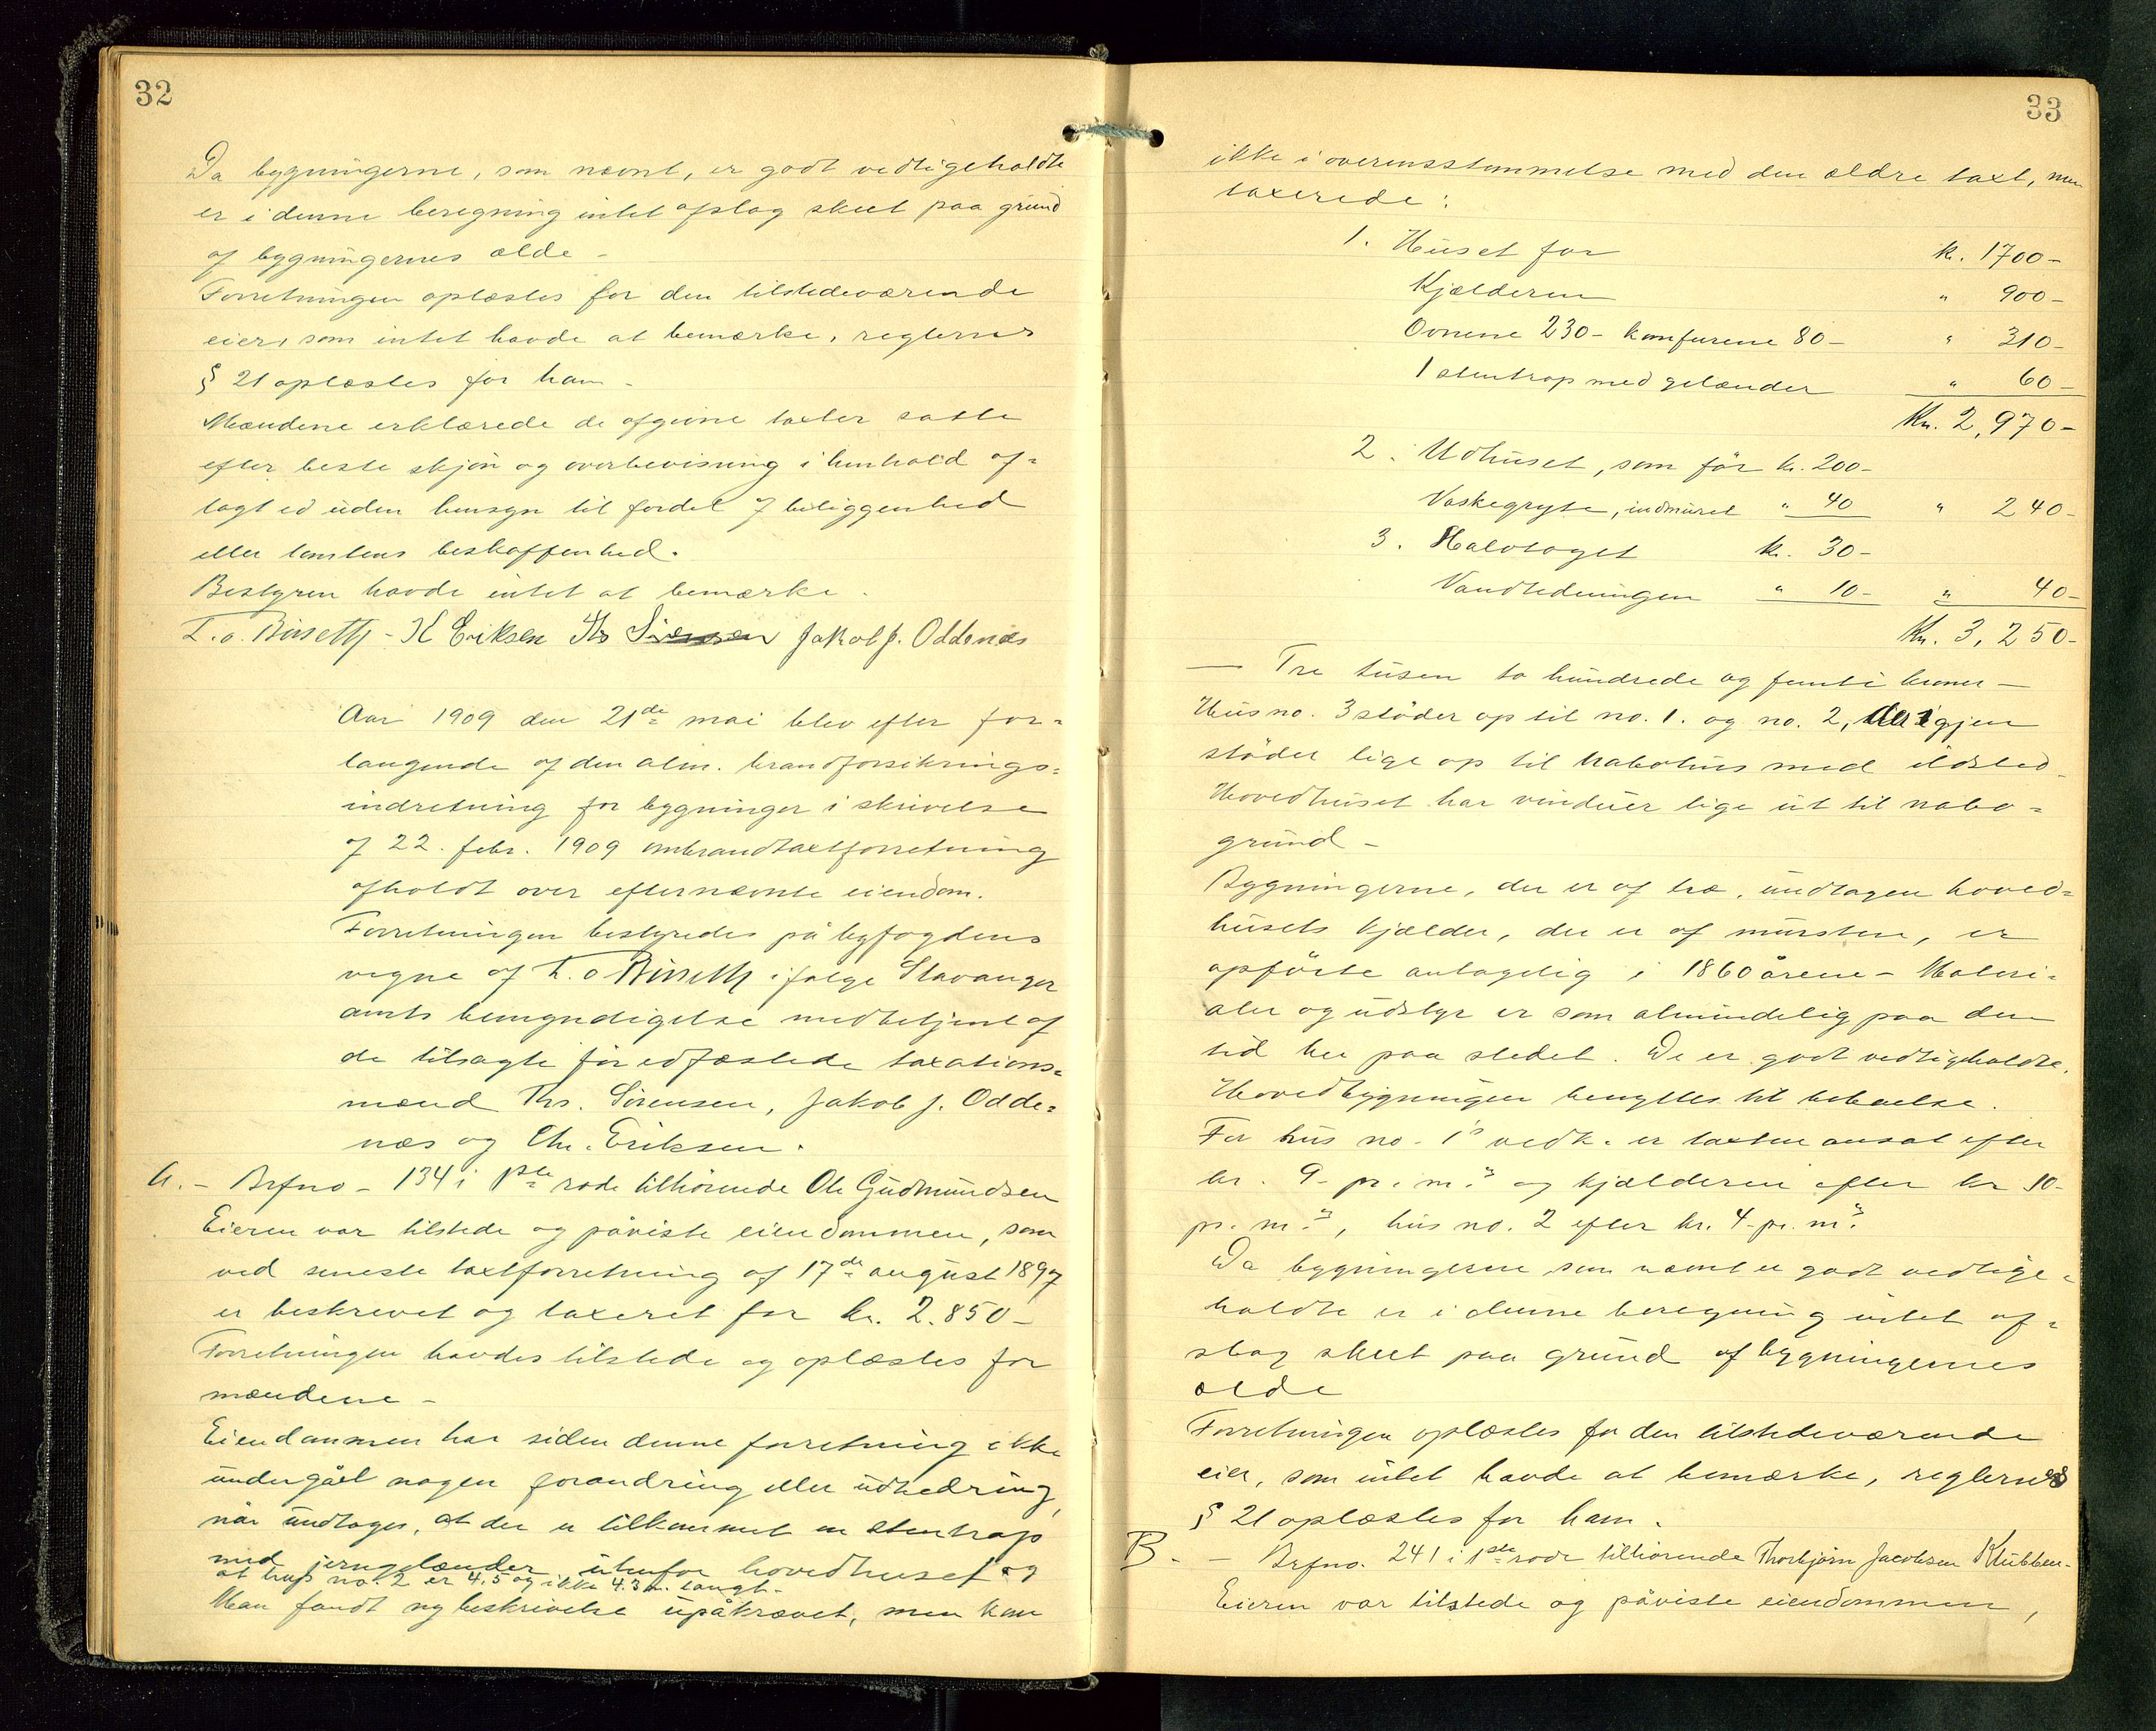 32
Da bygningerne, som nævnt, er godt vedligeholdte
er i denne beregning intet afslag skeet paa grund
af bygningernes ælde -
Forretningen oplæstes for den tilstedeværende
eier, som intet havde at bemærke, reglernes
§ 21 oplæstes for ham -
Mændene erklærede de afgivne taxter satte
efter beste skjøn og overbevisning i henhold af=
lagt ed uden hensyn til fordel af beliggenhed
eller tomtens beskaffenhed.
Bestyren havde intet at bemærke.
T. o. Birseth - K Eriksen Ths Sörensen Jakob J. Oddenæs
Aar 1909 den 21de mai blev efter for=
langende af den alm. brandforsikrings=
indretning for bygninger i skrivelse
af 22. febr. 1909 ombrandtaxtforretning
afholdt over efternævnte eiendom.
Forretningen bestyredes på byfogdens
vegne af T. o Birseth ifølge Stavanger
amts bemyndigelse medbetjent af
de tilsagte før edfæstede taxations=
mænd Ths. Sörensen, Jakob J. Odde=
næs og Chr. Eriksen.
A. - Brfno - 134 i 1ste rode tilhörende Ole Gudmundsen
Eieren var tilstede og påviste eiendommen, som
ved seneste taxtforretning af 17de august 1897
er beskrevet og taxeret for kr. 2.850 -
Forretningen havdes tilstede og oplæstes for
mændene -
Eiendommen har siden denne forretning ikke
undergået nogen forandring eller udbedring,
når undtages, at der er tilkommet en stentrap
med jerngelænder utenfor hovedhuset og
at hus no. 2 er 4.5 og ikke 4.3 m. langt.
Man fandt ny beskrivelse upåkrævet, men kom
33
ikke i overensstemmelse med den ældre taxt, men
taxerede:
1. Huset for kr. 1700 -
Kjælderen " 900 -
Ovnene 230 - komfurene 80 - " 310 -
1 stentrap med gelænder " 60 -
Kr. 2,970 -
2. Udhuset, som för kr. 200 -
Vaskegryte, indmuret " 40 " 240 -
3. Halvtaget kr. 30 -
Vandledningen " 10 - " 40 -
Kr. 3,250 -
— Tre tusen to hundrede og femti kroner —
Hus no. 3 stöder op til no. 1. og no. 2, der igjen
stöder lige op til nabohus med ildsted.
Hovedhuset har vinduer lige ut til nabo=
grund -
Bygningerne, der er af træ, undtagen hoved=
husets kjælder, der er af mursten, er
opförte antagelig i 1860 årene - Materi=
aler og udstyr er som almindelig paa den
tid her paa stedet. De er godt vedligeholdte.
Hovedbygningen benyttes til beboelse.
For hus no. 1's vedk. er taxten ansat efter
kr. 9 - pr. m.3 og kjælderen efter kr 10 -
pr. m.3, hus no. 2 efter kr. 4 - pr. m3.
Da bygningerne som nævnt er godt vedlige=
holdte er i denne beregning intet af=
slag skeet paa grund af bygningernes
ælde
Forretningen oplæstes for den tilstedeværende
eier, som intet havde at bemærke, reglernes
§ 21 oplæstes for ham.
B. - Brfno. 241 i 1ste rode tilhörende Thorbjörn Jacobsen Klubben -
Eieren var tilstede og påviste eiendommen,